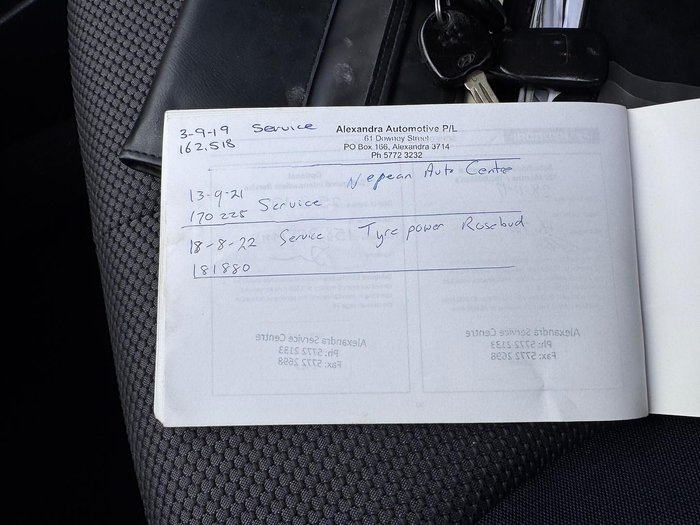 3-9-19 Service Alexandra Automotive P/L
162,518 61 Downey Street
PO Box 166, Alexandra 3714
Ph 5772 3232
Nepean Auto Centre
13-9-21
170 225 Service
18-8-22 Service Tyre power Rosebud
181880
Alexandra Service Centre
Ph: 5772 2133
Fax: 5772 2698
Alexandra Service Centre
Ph: 5772 2133
Fax: 5772 2698